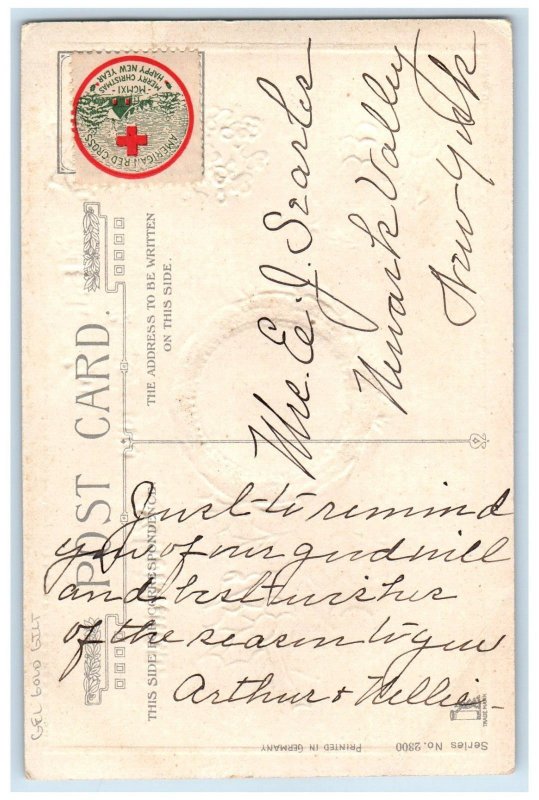 AMERICAN RED CROSS
MERRY CHRISTMAS
HAPPY NEW YEAR
MCMXI
POST CARD.
THE ADDRESS TO BE WRITTEN
ON THIS SIDE.
THIS SIDE FOR CORRESPONDENCE.
Mrs. E. J. Searles
Newark Valley
New York
Just to remind
you of our good will
and best wishes
of the season to you
Arthur & Nellie
GEL GOLD GILT
Series No. 2300
PRINTED IN GERMANY
TRADE MARK